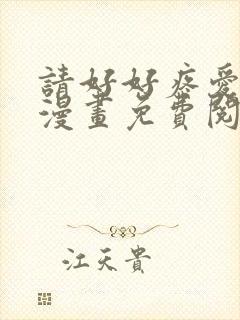 請好好疼愛
漫畫免費閱
江天貴